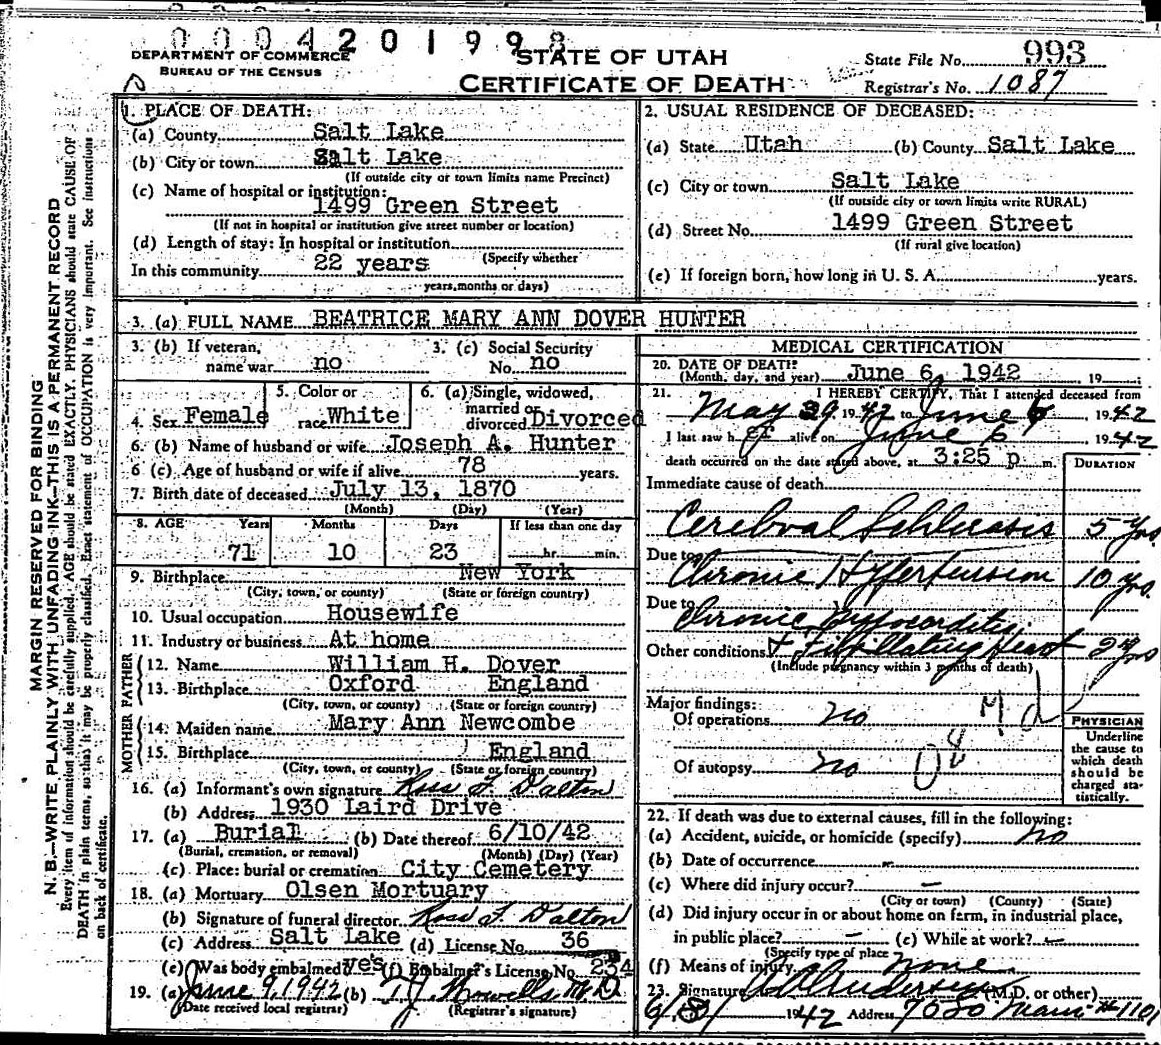 0004201998
DEPARTMENT OF COMMERCE
BUREAU OF THE CENSUS
STATE OF UTAH
CERTIFICATE OF DEATH
State File No. 993
Registrar's No. 1087
MARGIN RESERVED FOR BINDING
N. B.—WRITE PLAINLY WITH UNFADING INK—THIS IS A PERMANENT RECORD
Every item of information should be carefully supplied. AGE should be stated EXACTLY. PHYSICIANS should state CAUSE OF
DEATH in plain terms, so that it may be properly classified. Exact statement of OCCUPATION is very important. See instructions
on back of certificate.
1. PLACE OF DEATH:
(a) County Salt Lake
(b) City or town Salt Lake
(If outside city or town limits name Precinct)
(c) Name of hospital or institution:
1499 Green Street
(If not in hospital or institution give street number or location)
(d) Length of stay: In hospital or institution
(Specify whether
In this community 22 years
years, months or days)
2. USUAL RESIDENCE OF DECEASED:
(a) State Utah (b) County Salt Lake
(c) City or town Salt Lake
(If outside city or town limits write RURAL)
(d) Street No. 1499 Green Street
(If rural give location)
(e) If foreign born, how long in U. S. A. years.
3. (a) FULL NAME BEATRICE MARY ANN DOVER HUNTER
3. (b) If veteran, name war no
3. (c) Social Security No. no
4. Sex Female
5. Color or race White
6. (a) Single, widowed, married or divorced Divorced
6. (b) Name of husband or wife Joseph A. Hunter
6 (c) Age of husband or wife if alive 78 years.
7. Birth date of deceased July 13, 1870
(Month) (Day) (Year)
8. AGE Years Months Days If less than one day
71 10 23 hr. min.
9. Birthplace New York
(City, town, or county) (State or foreign country)
10. Usual occupation Housewife
11. Industry or business At home
FATHER
12. Name William H. Dover
13. Birthplace Oxford England
(City, town, or county) (State or foreign country)
MOTHER
14. Maiden name Mary Ann Newcombe
15. Birthplace England
(City, town, or county) (State or foreign country)
16. (a) Informant's own signature Ross F. Dalton
(b) Address 1930 Laird Drive
17. (a) Burial (b) Date thereof 6/10/42
(Burial, cremation, or removal) (Month) (Day) (Year)
(c) Place: burial or cremation City Cemetery
18. (a) Mortuary Olsen Mortuary
(b) Signature of funeral director Ross F. Dalton
(c) Address Salt Lake (d) License No. 36
(e) Was body embalmed? yes (f) Embalmer's License No. 234
19. (a) June 9, 1942 (b) T. J. Howells M.D.
(Date received local registrar) (Registrar's signature)
MEDICAL CERTIFICATION
20. DATE OF DEATH:
(Month, day, and year) June 6, 1942 , 19
21. I HEREBY CERTIFY, That I attended deceased from
May 29 1942 to June 6, 1942
I last saw her alive on June 6, 1942
death occurred on the date stated above, at 3:25 p m.
DURATION
Immediate cause of death
Cerebral Schlerosis 5 yrs.
Due to
Chronic Hypertension 10 yrs.
Due to
Chronic Myocarditis
Other conditions + Fibrillating Heart 2 yrs
(Include pregnancy within 3 months of death)
Major findings:
Of operations no
Of autopsy no
PHYSICIAN
Underline
the cause to
which death
should be
charged sta-
tistically.
22. If death was due to external causes, fill in the following:
(a) Accident, suicide, or homicide (specify) no
(b) Date of occurrence –
(c) Where did injury occur? –
(City or town) (County) (State)
(d) Did injury occur in or about home on farm, in industrial place,
in public place? – (e) While at work? –
(Specify type of place
(f) Means of injury none
23. Signature Anderson (M.D. or other)
6/8/ 1942 Address